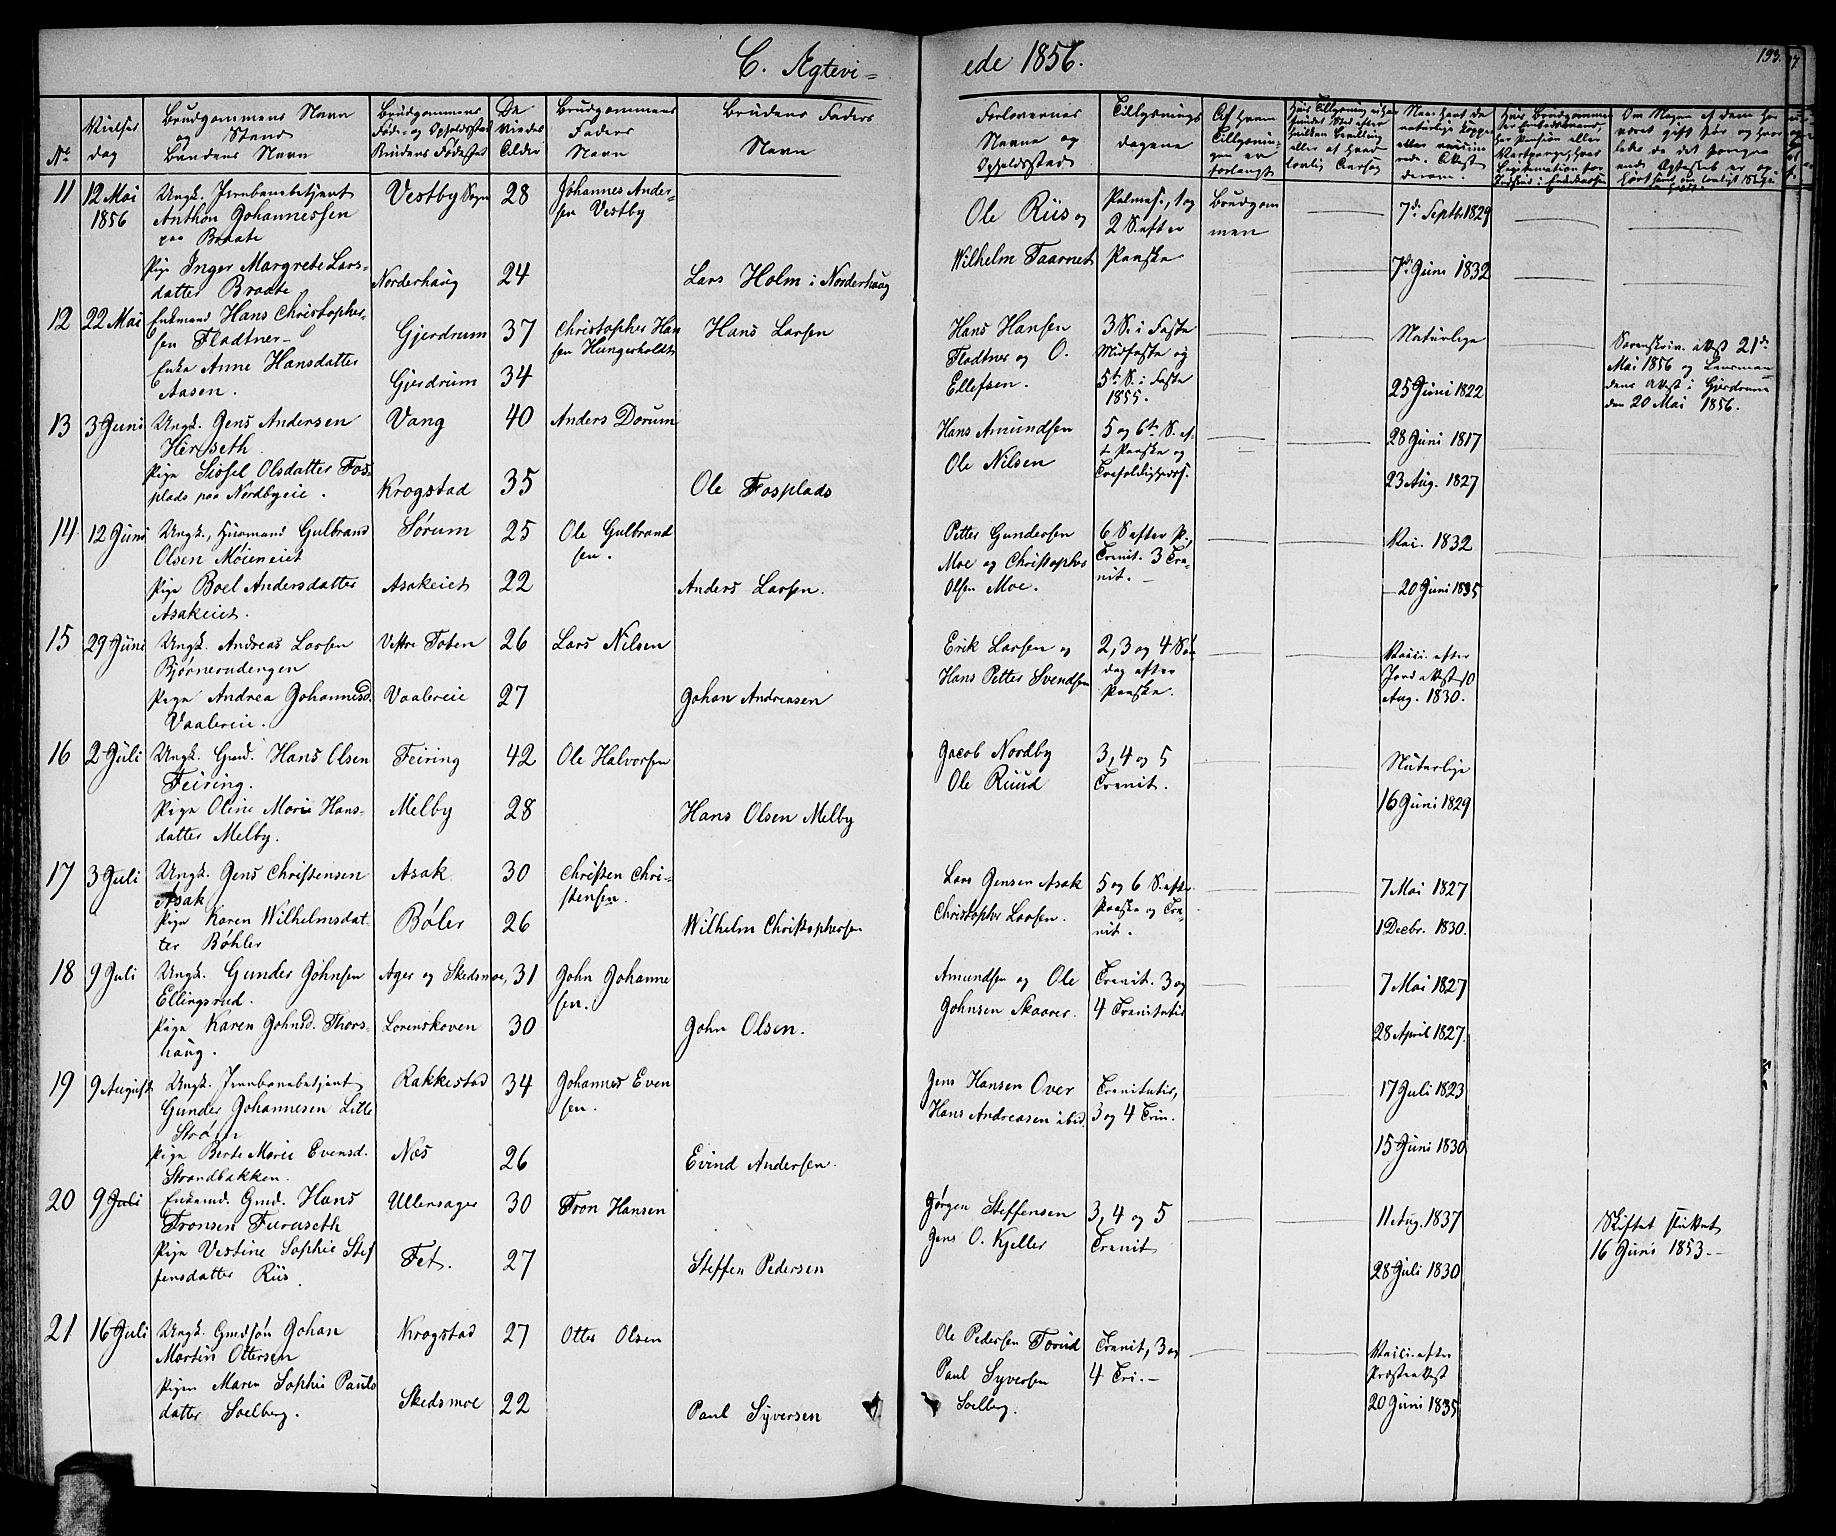 C. Ægtevi- ede 1856.
193.
No
Vielses dag
Brudgommens Navn og Stand
Brudens Navn
Brudgommens Føde- og Opholdssted
Brudens Fødested
De Viedes Alder
Brudgommens Faders Navn
Brudens Faders Navn
Forlovernes Navne og Opholdssted
Tillysnings dagene
Af hvem Tillysningen er forlangt
11 12 Mai 1856
Ungk. Jernbanebetjent
Anthon Johannessen
paa Braate
Vestby Sogn 28
Johannes Andersen Vestby
Ole Riis og
Wilhelm Taarnet
Palmes., 1 og
2 S. efter
Paaske
Brudgommen
7de Septb. 1829
Pige Inger Margrete Lars-
datter Braate
Norderhaug 24
Lars Holm i Norderhaug
7de Juni 1832
12 22 Mai
Enkemand Hans Christopher-
sen Fladtner
Gjerdrum 37
Christopher Han
sen Hungerholdt
Hans Larsen
Hans Hansen
Fladtner og O.
Ellefsen.
3 S. i Faste
Midfaste og
5te S. i Faste
1855.
Naturlige
Enke Anne Hansdatter
Aasen.
Gjerdrum 34
25 Juni 1822
Sorenskriv. Attest 21de
Mai 1856 og Lensman-
dens Attest i Gjerdrum
den 20 Mai 1856.
13 3 Juni
Ungk. Jens Andersen
Herseth
Vang 40
Anders Dorum
Hans Amundsen
Ole Nilsen
5 og 6te S. ef-
t Paaske og
Trefoldighedsf.
28 Juni 1817
Pige Sissel Olsdatter Fos-
plads paa Nordbyeie.
Krogstad 35
Ole Fosplads
23 Aug. 1827
14 12 Juni
Ungk., Husmand Gulbrand
Olsen Moieneiet
Sørum 25
Ole Gulbrand
sen.
Petter Gundersen
Moe og Christopher
Olsen Moe.
6 S. efter P.,
Trenit. 3 Tre-
nit.
Vac. 1832
Pige Boel Andersdatter
Asakeiet.
Asakeiet 22
Anders Larsen.
20 Juni 1835
15 29 Juni
Ungk. Andreas Larsen
Bjørnerudengen
Vestre Toten 26
Lars Nilsen
Erik Larsen og
Hans Petter Svendsen
2, 3 og 4 Søn
dag efter
Paaske.
Vacci. efter
Jord Attest 10
Aug. 1830.
Pige Andrea Johannesd.
Vaalereie.
Vaalereie 27
Johan Andreasen
16 2 Juli
Ungk. Gmd. Hans Olsen
Feiring.
Feiring 42
Ole Halvorsen
Jacob Nordby
Ole Ruud
3, 4 og 5
Trenit.
Naturlige
Pige Oline Marie Hans-
datter Melby.
Melby 28
Hans Olsen Melby
16 Juni 1829
17 3 Juli
Ungk. Jens Christensen
Asak
Asak 30
Christen Chri-
stensen.
Lars Jensen Asak
Christopher Larsen.
5 og 6 S. eft.
Paaske og Tre-
nit.
7 Mai 1827
Pige Karen Wilhelmsdat-
ter Bøhler
Bøler 26
Wilhelm Christophersen
1 Decbr. 1830.
18 9 Juli
Ungk. Gunder Johnsen
Ellingsrud.
Ager og Skedsmoe, 31
John Johanne
sen.
Amundsen og Ole
Johnsen Skaarer.
Trenit. 3 og
4 Trenitatis
7 Mai 1827
Pige Karen Johnsd. Thors-
haug.
Lorenskoven 30
John Olsen.
28 April 1827.
19 9 August
Ungk. Jernbanebetjent
Gunder Johannesen Lille
Strøm
Rakkestad 34
Johannes Even
sen.
Jens Hansen Over
Hans Andreasen ibid.
Trenitatis,
3 og 4 Trin.
17 Juli 1823
Pige Berte Marie Evensd.
Strandbakken.
Nes 26
Evind Andersen.
15 Juni 1830
20 9 Juli
Enkemd. Gmd. Hans
Tronsen Furuseth
Ullensager 30
Tron Hansen
Jørgen Steffensen
Jens O. Kjeller
3, 4 og 5
Trenit
11 Aug. 1837
Skiftet sluttet
16 Juni 1853.
Pige Vestine Sophie Stef
fensdatter Riis.
Fet. 27
Steffen Pedersen
28 Juli 1830
21 16 Juli
Ungk. Gmdsøn Johan
Martin Ottersen
Krogstad 27
Otter Olsen
Ole Pedersen Torud
Paul Syversen
Solberg.
Trenit, 3 og
4 Tri.
Vacci. efter
Præsteattest
Pigen Maren Sophie Pauls
datter Solberg.
Skedsmoe 22
Paul Syversen
20 Juni 1835